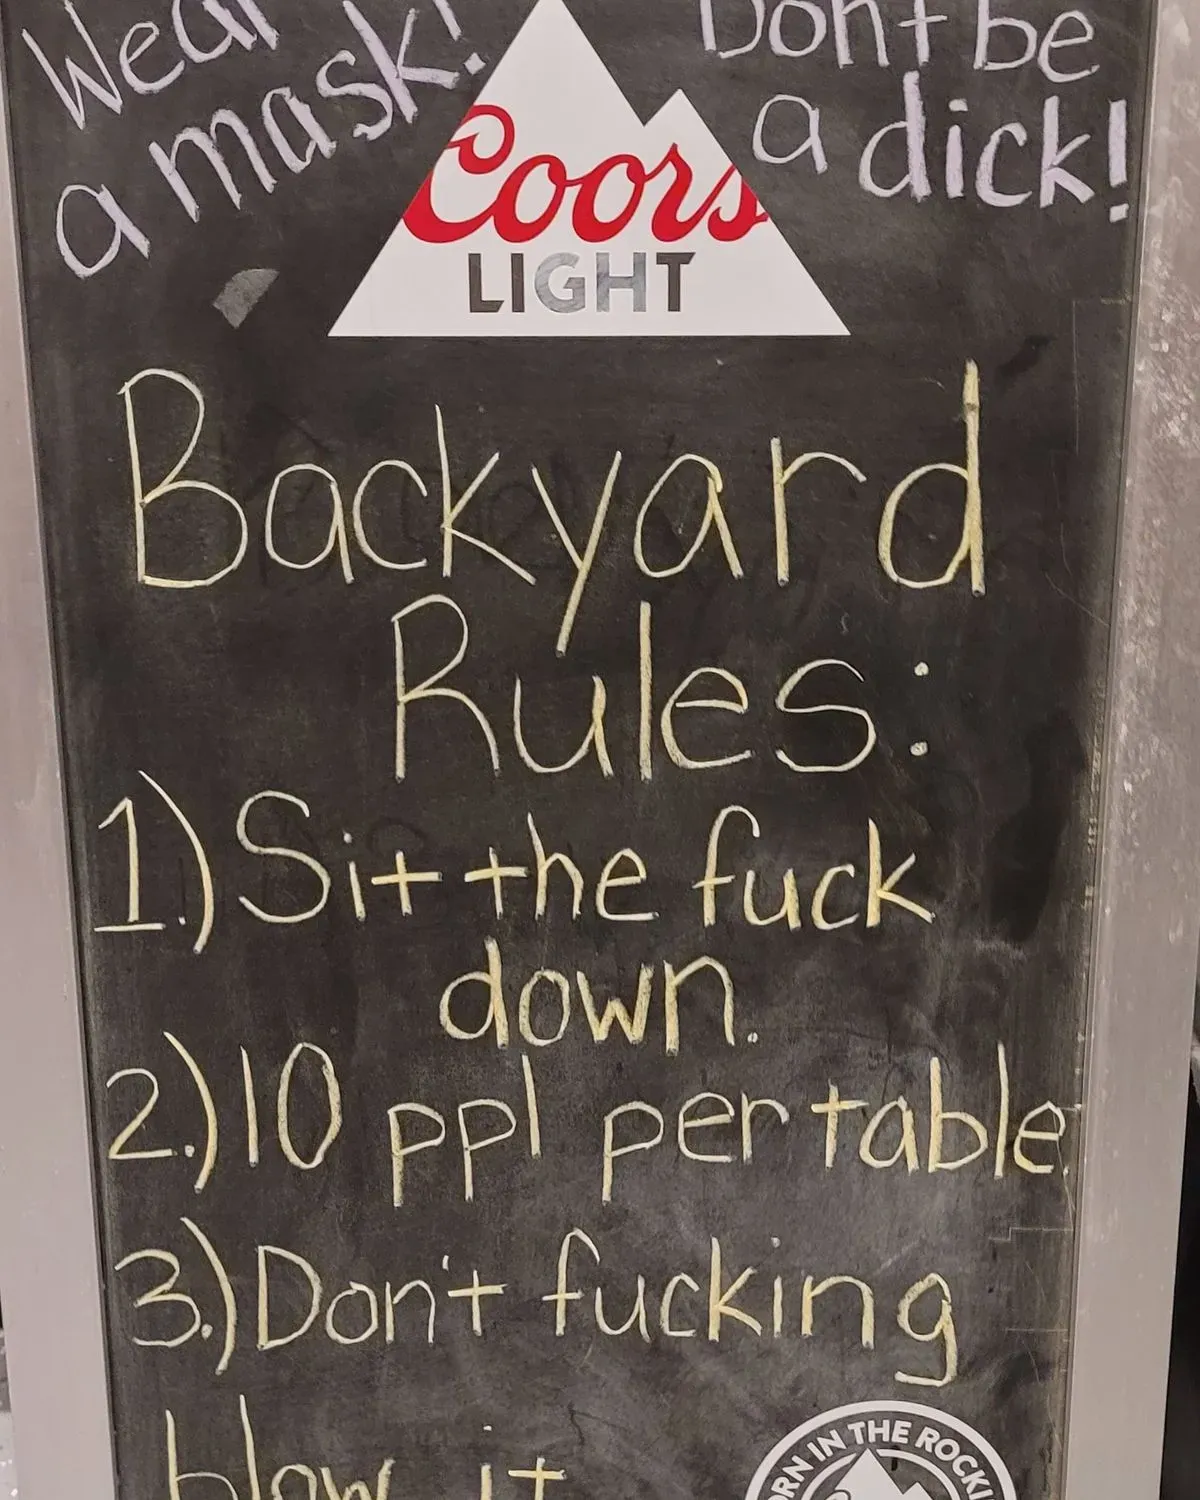 Wear
a mask!
Don't be
a dick!
Coors
LIGHT
Backyard
Rules:
1.) Sit the fuck
down.
2.) 10 ppl per table.
3.) Don't fucking
blow it
BORN IN THE ROCKI